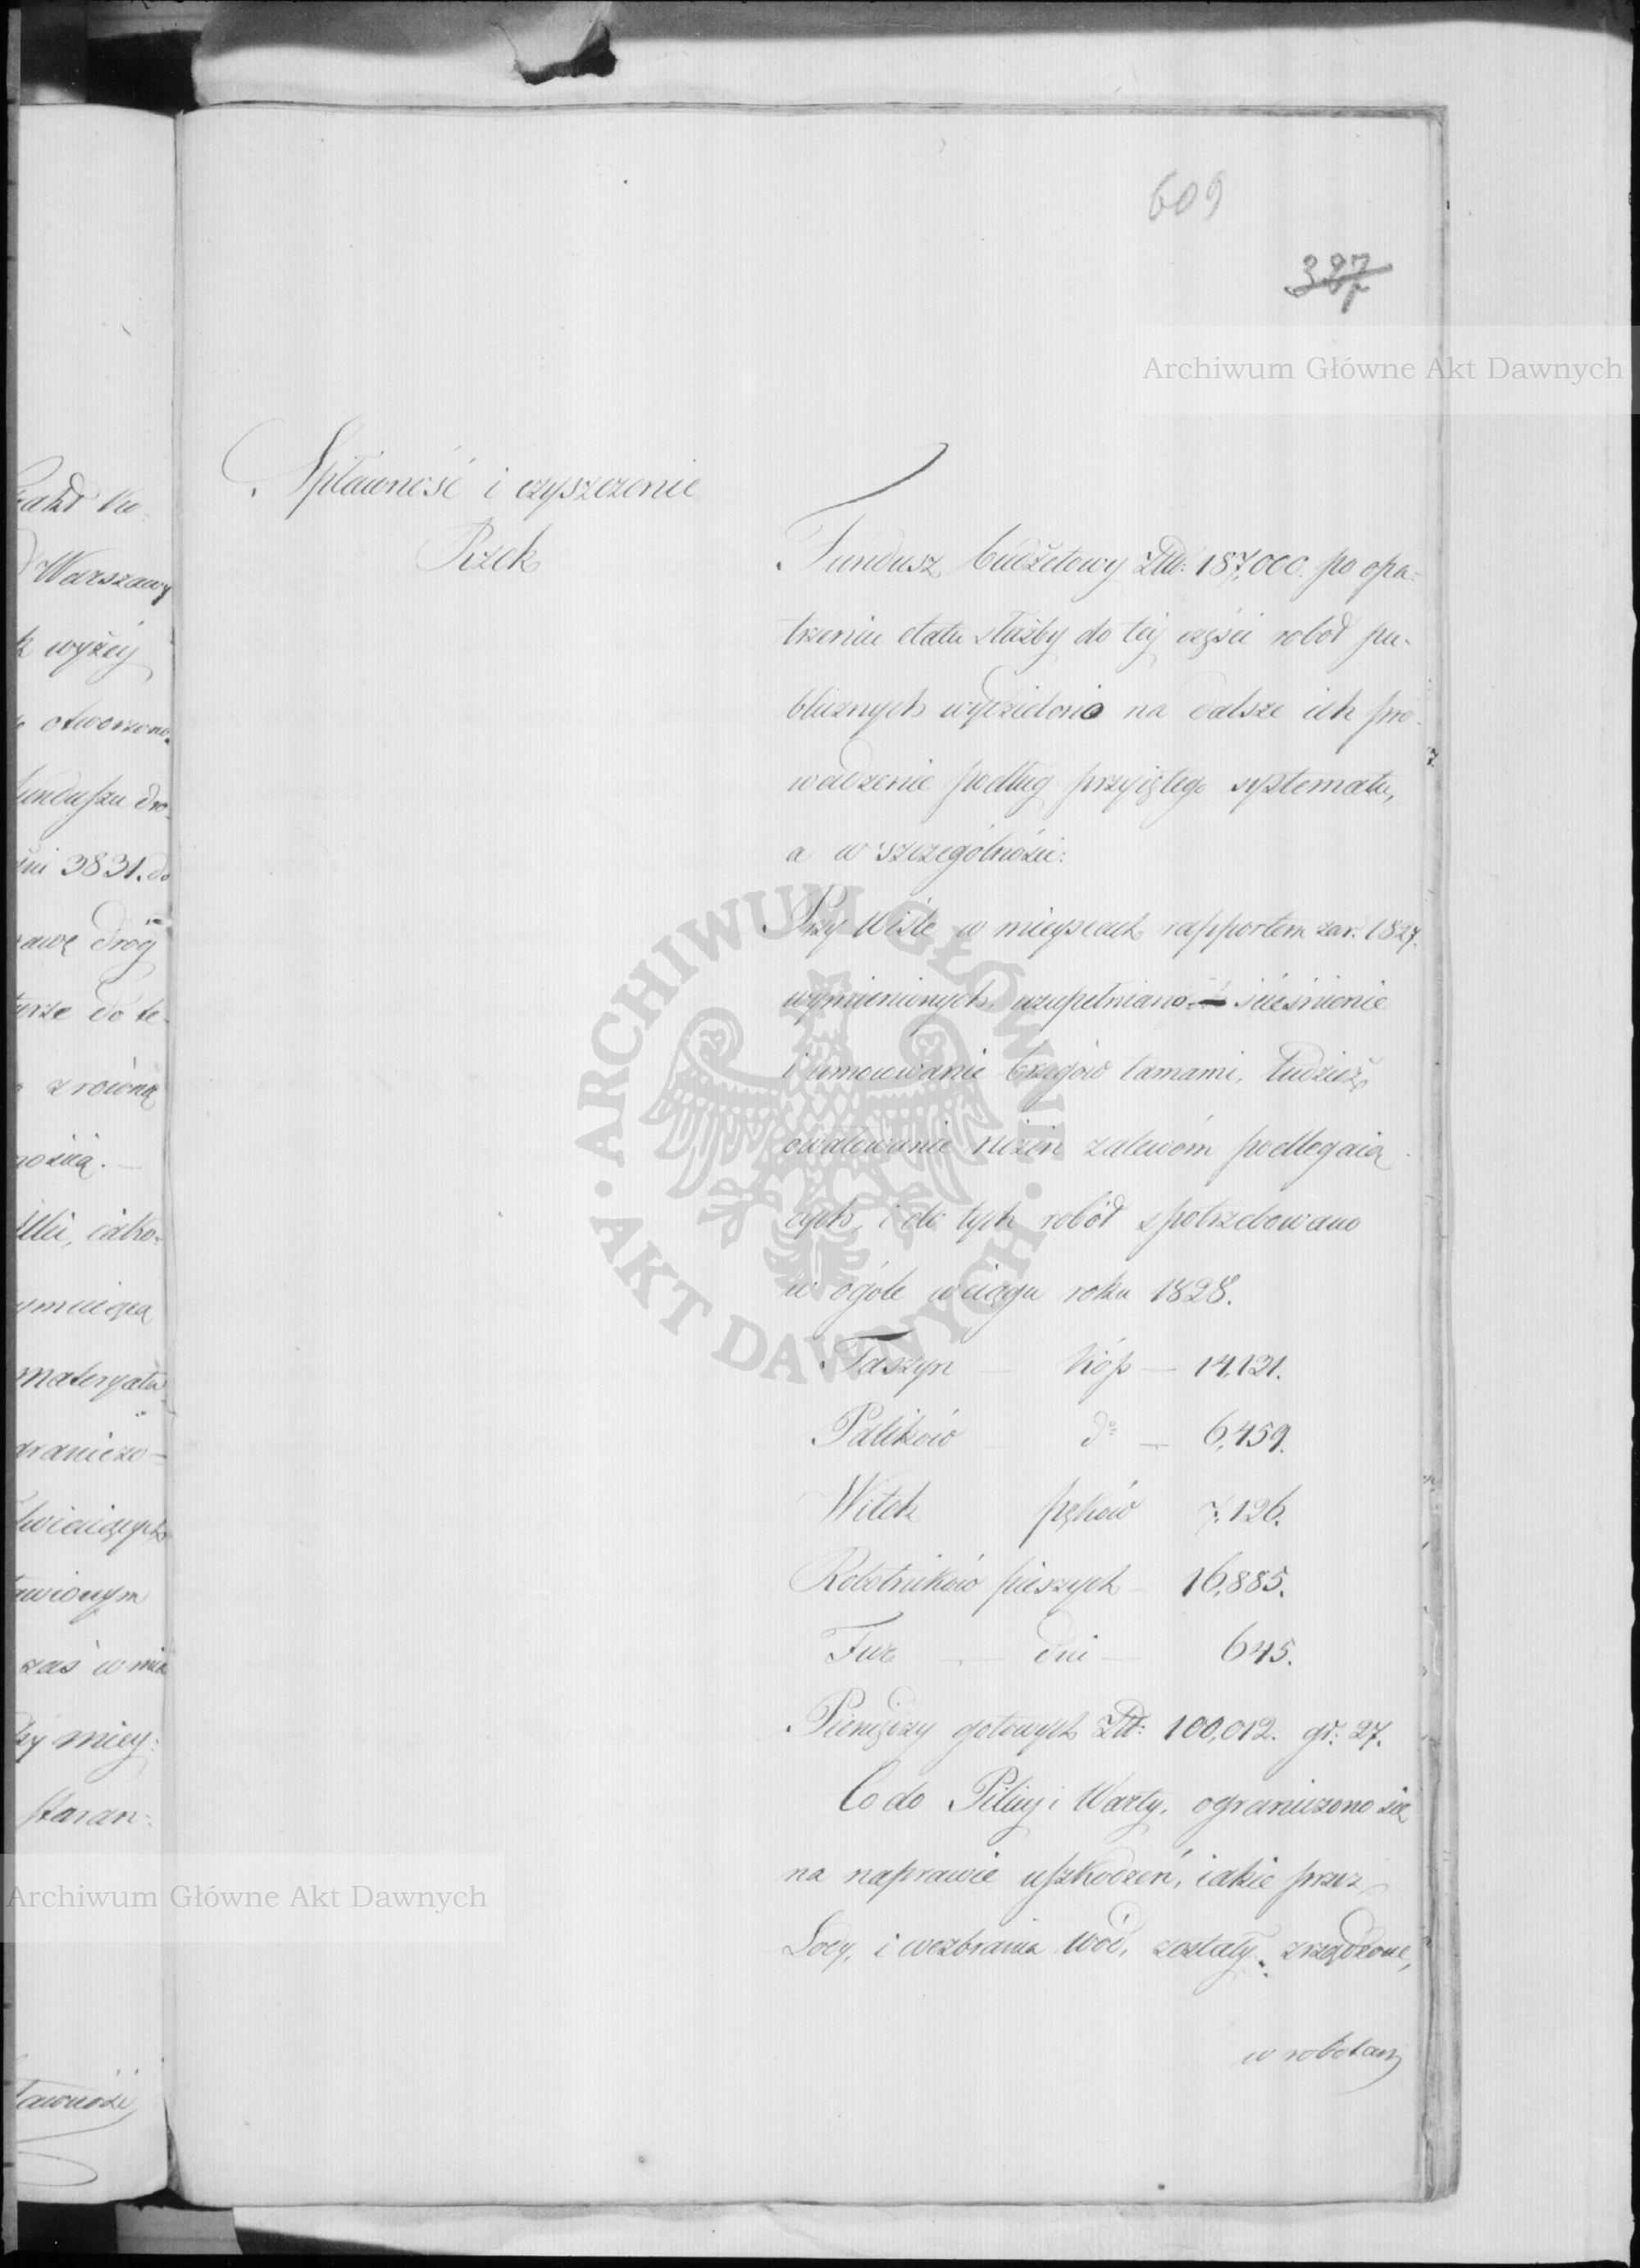 609
327
Archiwum Główne Akt Dawnych
Spławność i czyszczenie
Rzek
Fundusz budżetowy Złt: 187,000. po opa:
trzeniu etatu służby do téj części robót pu-
blicznych wydzielono na dalsze ich pro-
wadzenie podług przyiętego systematu,
a w szczególności:
Przy Wiśle w mieyscach rapportem za r. 1827.
wymienionych, uzupełniano ścieśnienie
i umocowanie brzegów tamami, tudzież
owałowanie nizin zalewóm podlegaią
cych, i do tych robót spotrzebowano
w ogóle w ciągu roku 1828.
Faszyn — Kóp — 14,121.
Palików do — 6,459.
Witek pęków 7,126.
Robotników pieszych — 16,885.
Fur — dni — 645.
Pieniędzy gotowych Złt: 100,012. gr: 27.
Co do Pilicy i Warty, ograniczono się
na naprawie uszkodzeń, iakie przez
Lody, i wezbrania wód, zostały zrządzone,
w robotach
ARCHIWUM GŁÓWNE AKT DAWNYCH
Warszawy
wyżéj
otworzone
funduszu dro-
3831. do
dróg
do te-
z równą
iako-
materyału
zaś w mie
miey:
staran:
Archiwum Główne Akt Dawnych